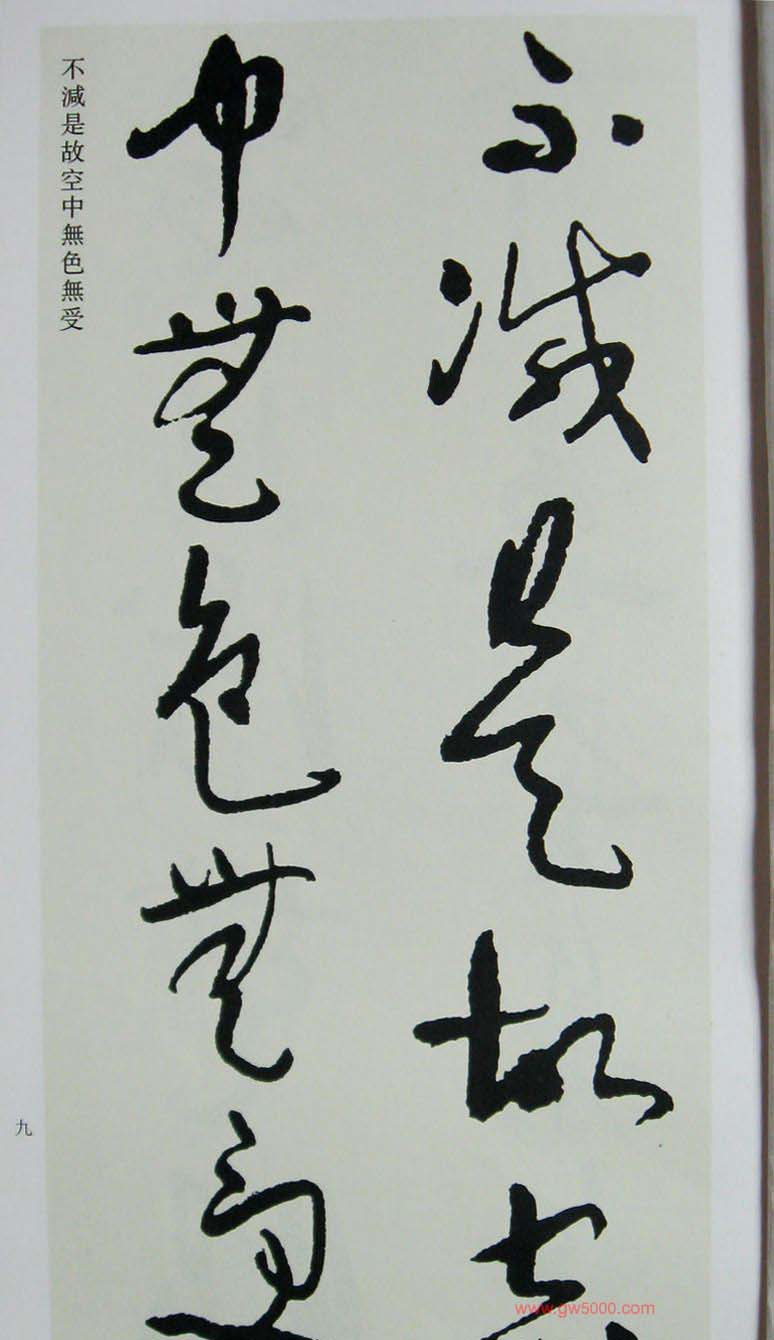 不減是故空
中無色無受
不減是故空中無色無受
九
www.gw5000.com